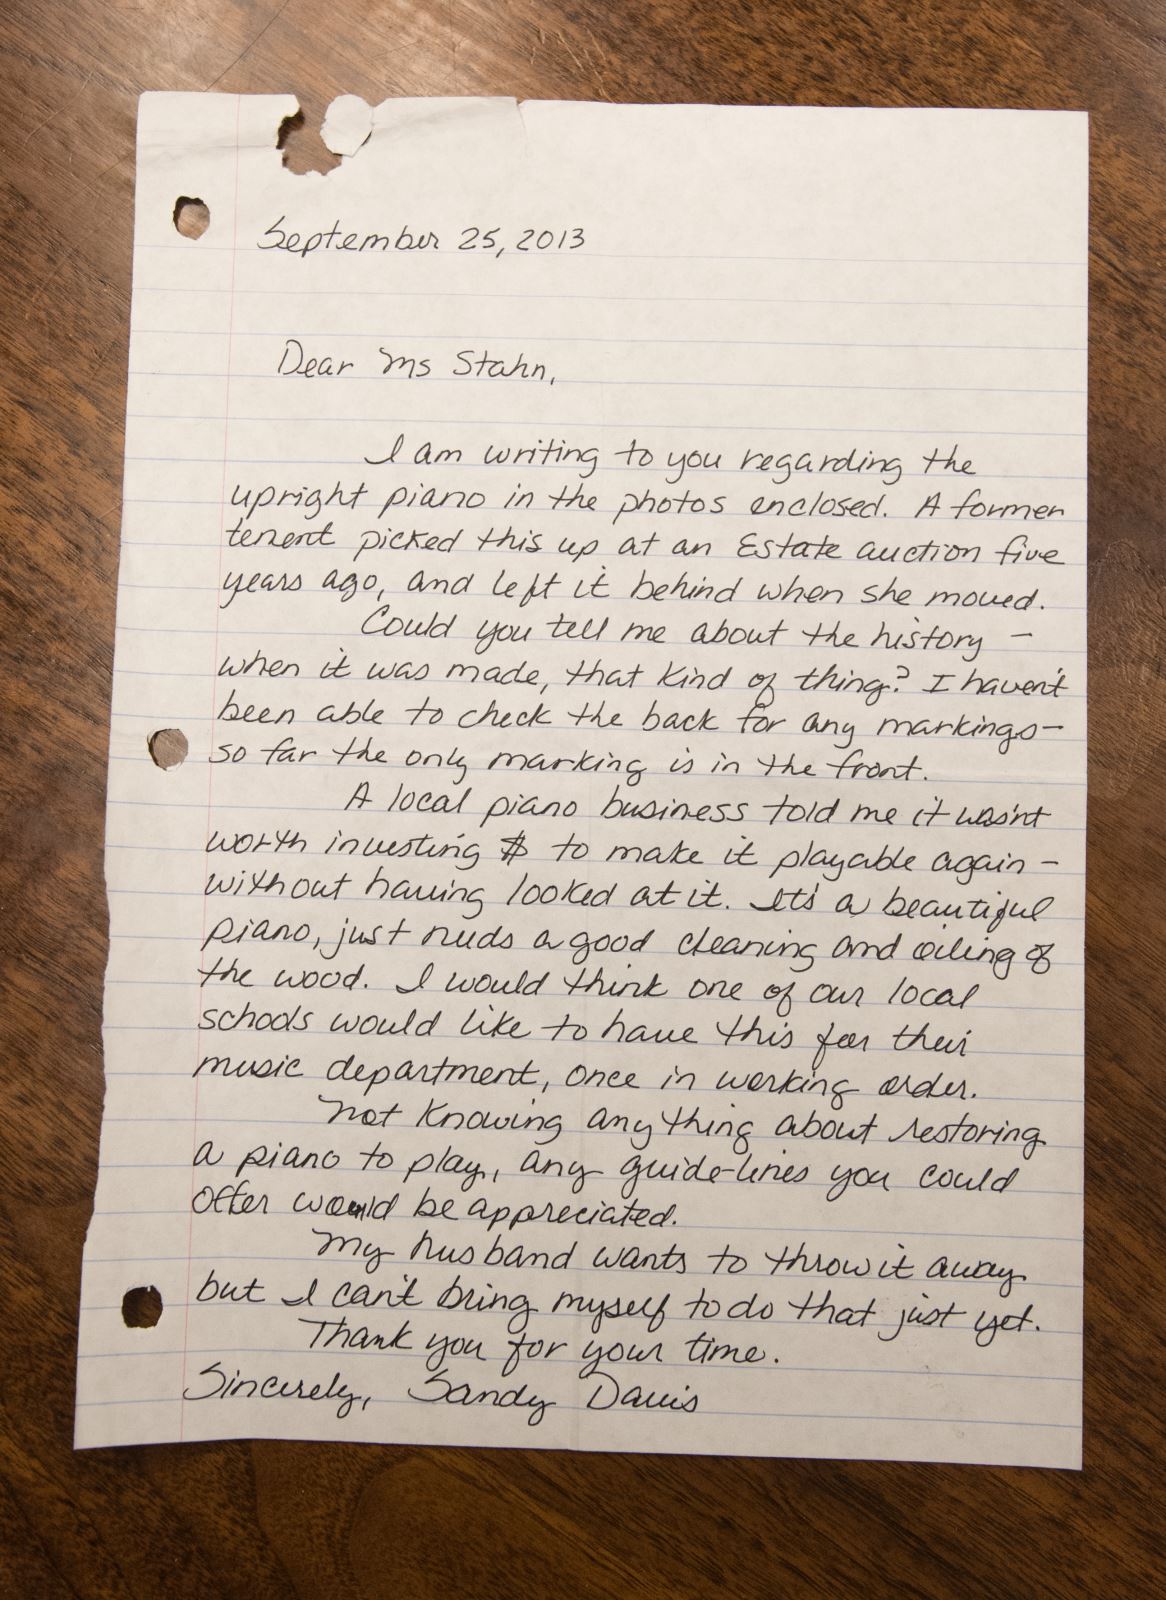 September 25, 2013
Dear Ms Stahn,
I am writing to you regarding the
upright piano in the photos enclosed. A former
tenent picked this up at an Estate auction five
years ago, and left it behind when she moved.
Could you tell me about the history –
when it was made, that kind of thing? I haven't
been able to check the back for any markings –
so far the only marking is in the front.
A local piano business told me it wasn't
worth investing $ to make it playable again –
without having looked at it. It's a beautiful
piano, just needs a good cleaning and oiling of
the wood. I would think one of our local
schools would like to have this for their
music department, once in working order.
Not knowing anything about restoring
a piano to play, any guide-lines you could
offer would be appreciated.
My husband wants to throw it away
but I can't bring myself to do that just yet.
Thank you for your time.
Sincerely, Sandy Davis